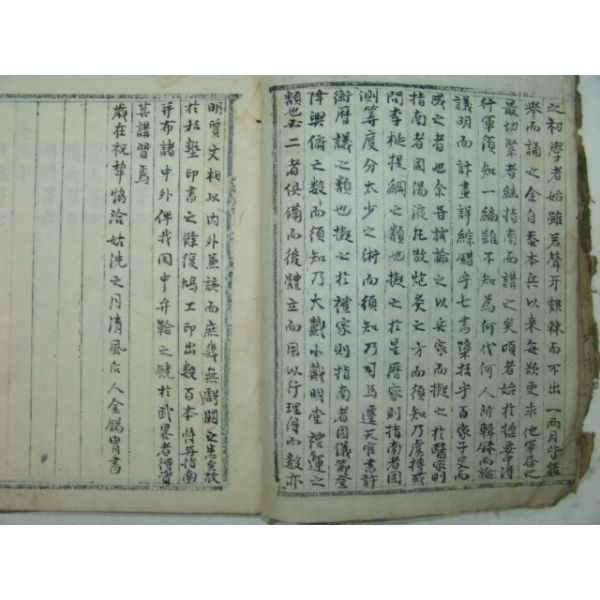 之初學者始雖若聱牙艱棘而不出一兩月皆能
舉而誦之余自忝本兵以來每欲更求他軍吾之
最切緊者継指南而講之矣頃者始於揔要中得
行軍須知一編雖不知為何代何人所輯然而論
議明而計畫詳綜錯乎七書檃括乎百家子史而
成之者也余嘗試論之以兵家而擬之於醫家則
指南者固湯液丸散炮灸之方而須知乃虞摶或
問李梴提綱之類也擬之於星曆家則指南者固
測筭度分太少之術而須知乃司馬遷天官書許
衡曆議之類也擬之於禮家則指南者固儀節登
降興俯之數而須知乃大戴小戴明堂禮運之
類也二者俱備而後體立而用以行理得而數亦
明質文相以內外兼該而庶幾無闕之患矣故
於私塾印書之餘復鳩工印出數百本將與指南
并布諸中外俾我國中弁鞈之  於武畧者得資
其講習焉
歲在祝犂協洽姑洗之月清風后人金錫胄書